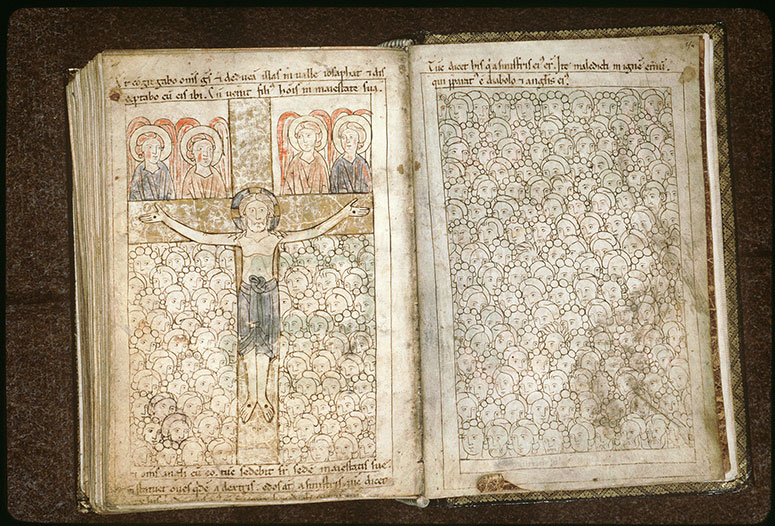 et cōg̃gabo om̄s gs̃ et deducā illas in valle iosaphat et dis
ceptabo cū eis ibi. Cū ven̄it fili᷒ hoīs in maiestate sua.
et om̄s angł'i cū eo. tūc sedebit sr̃ sedē maiestatis sue
statuet oves qdē a dextris. edos at̄ a sinistris. tūc dicet
Tūc dicet his q̇ a sinistris ei᷒ er̄t. Ite maledicti in ignē et̄nū.
qui parat᷒ ē diabolo et anglis ei᷒.